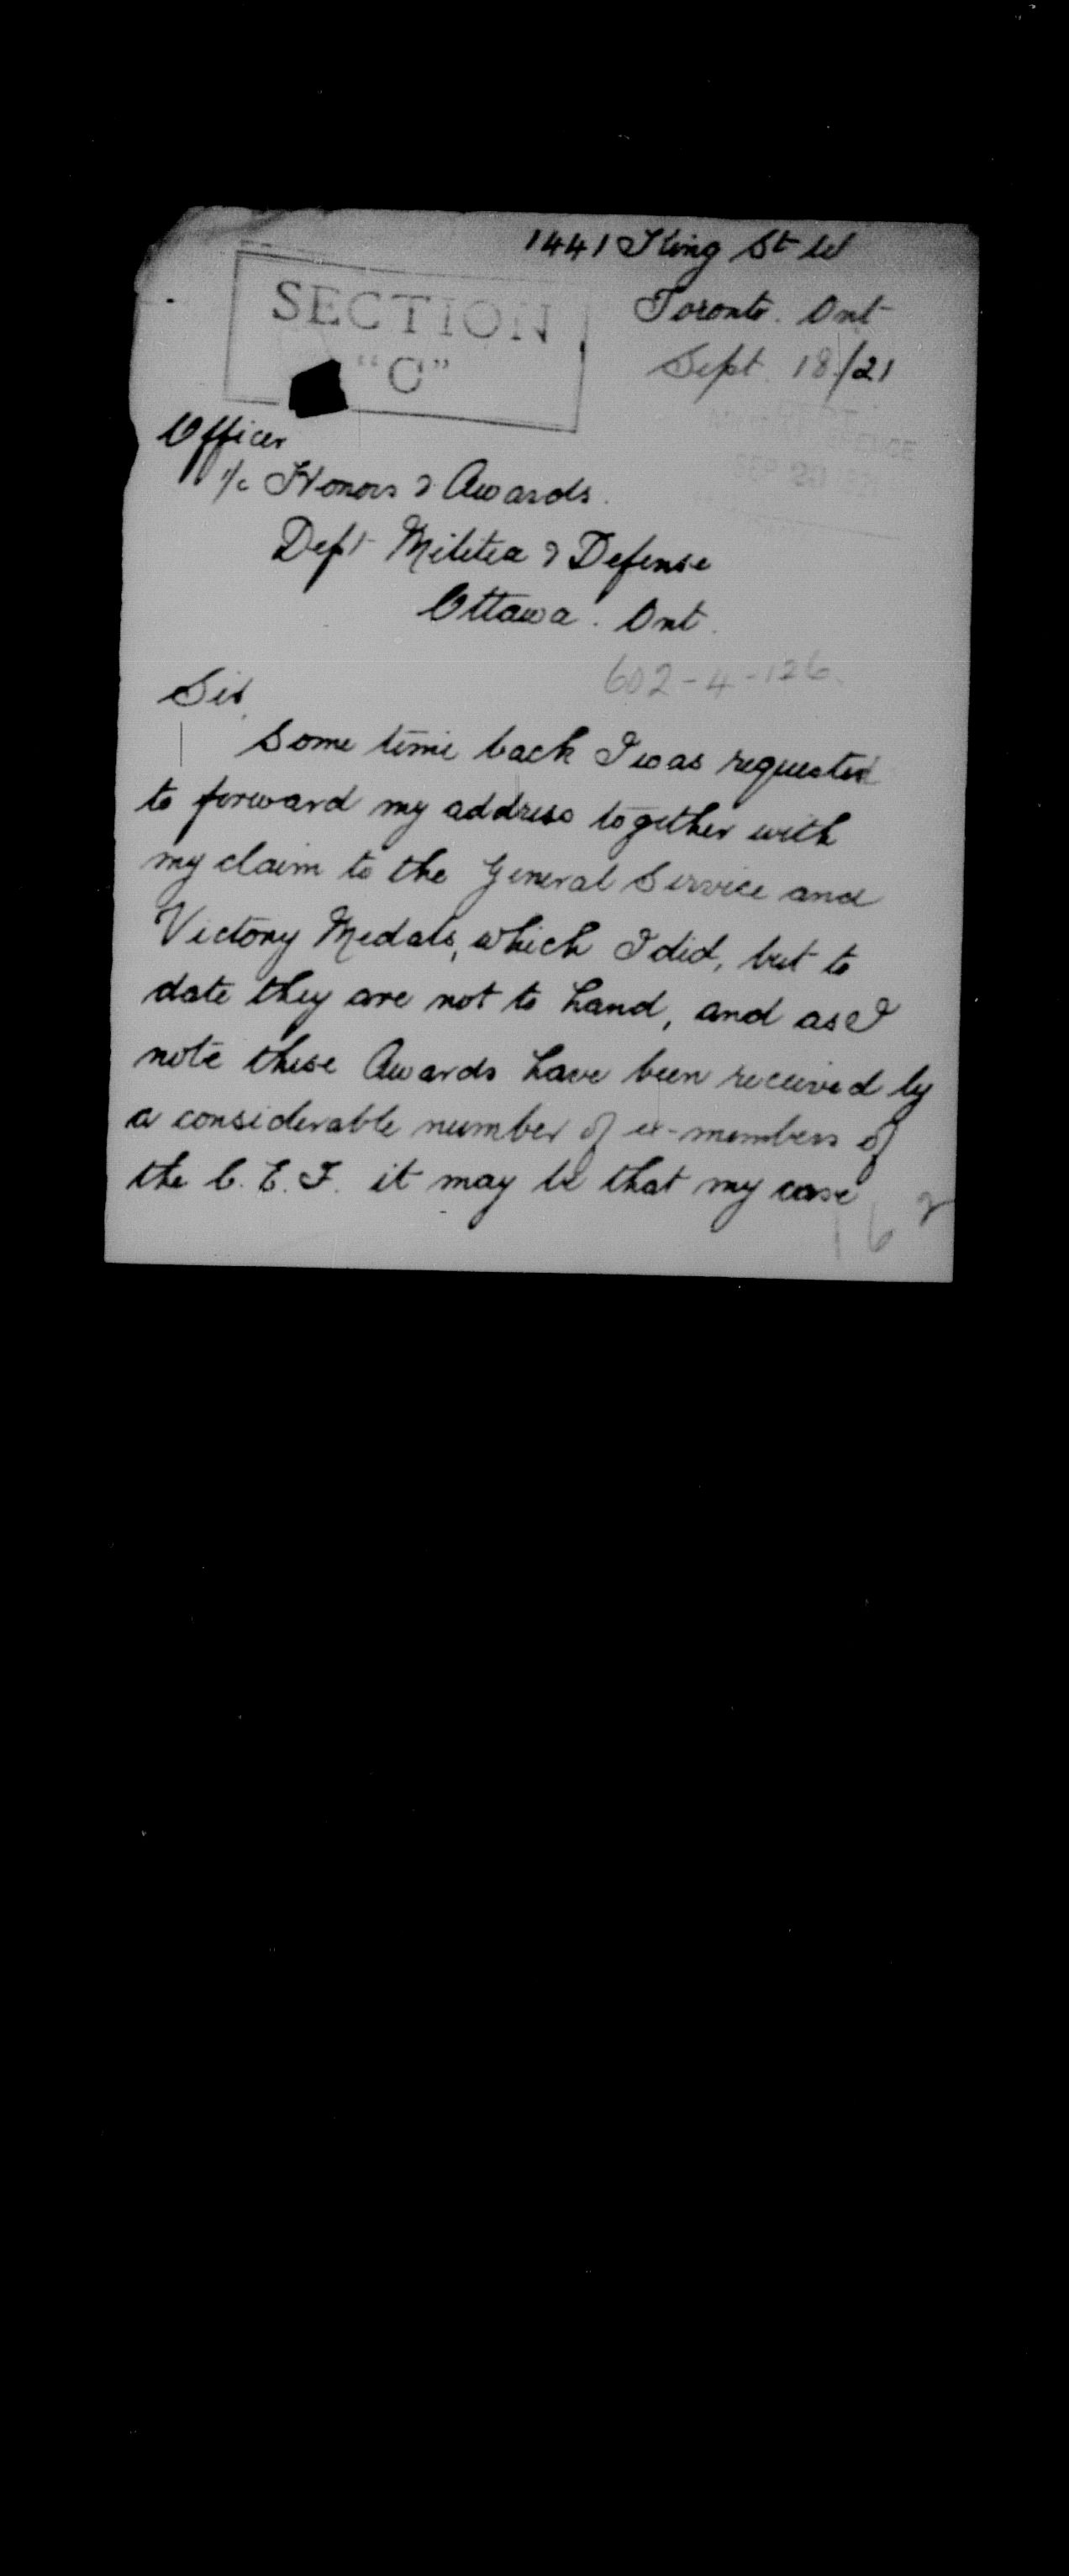 1441 King St W
Toronto. Ont
Sept. 18/21
SECTION
"C"
SEP 20
Officer
i/c Honors & Awards.
Dept Militia & Defense
Ottawa. Ont.
602-4-126.
Sir,
Some time back I was requested
to forward my address together with
my claim to the General Service and
Victory Medals, which I did, but to
date they are not to hand, and as I
note these Awards have been received by
a considerable number of ex-members of
the C. E. F. it may be that my case